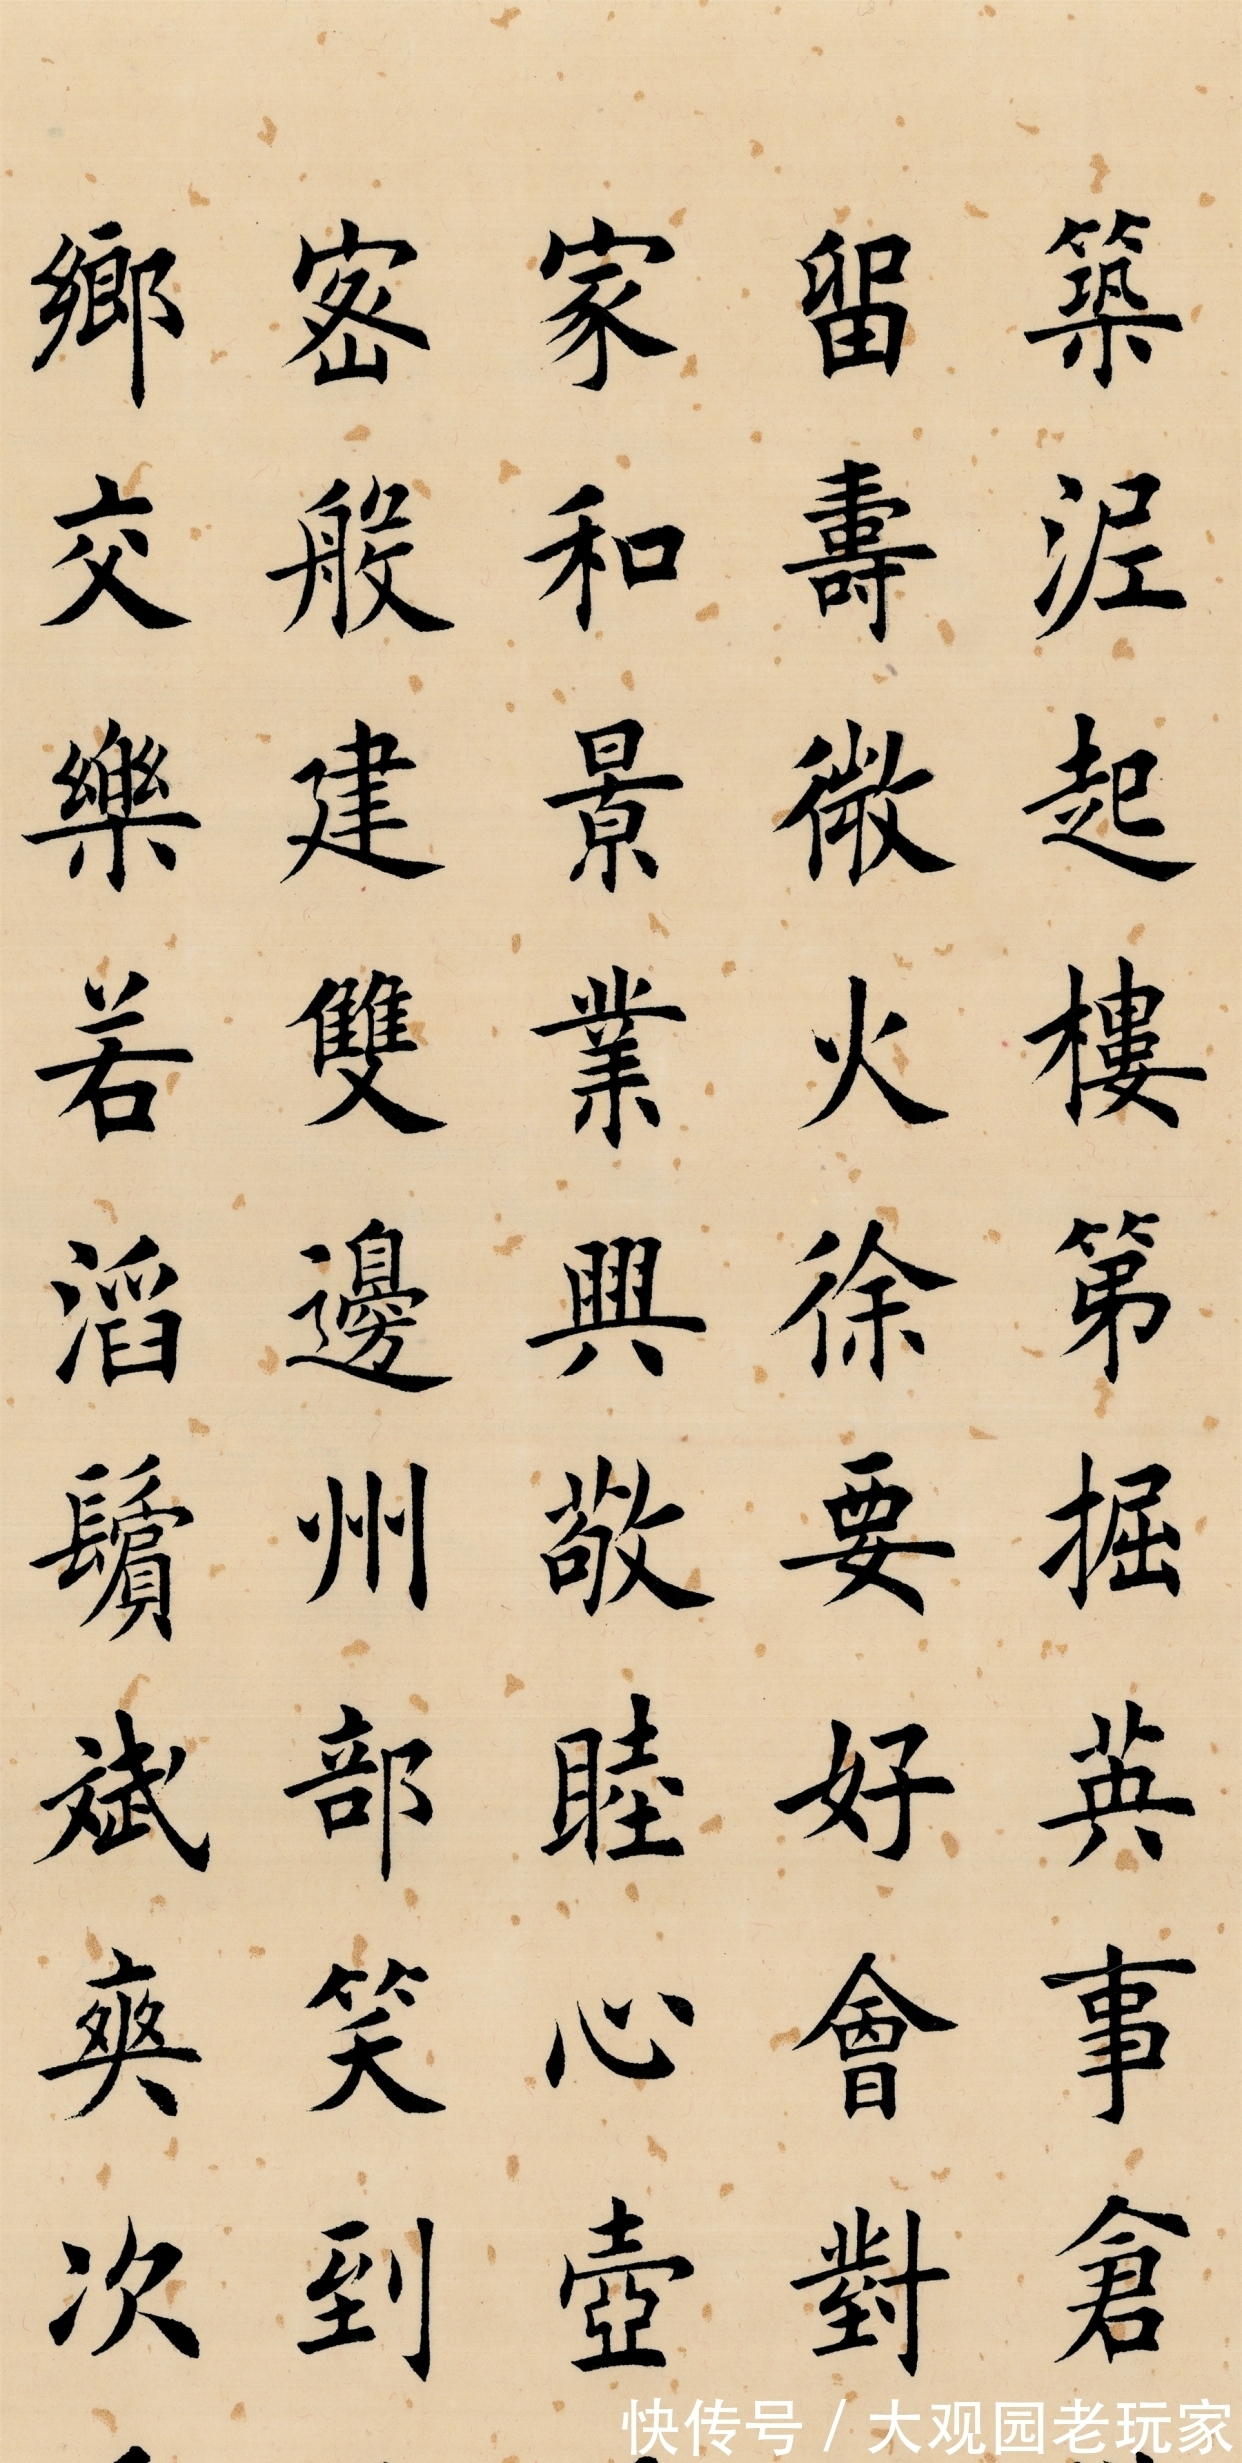 築泥起樓第掘英事倉
留壽微火徐要好會對
家和景業興敬睦心壺
密般建雙邊州部笑到
鄉交樂若滔鬢斌爽次
快传号 / 大观园老玩家